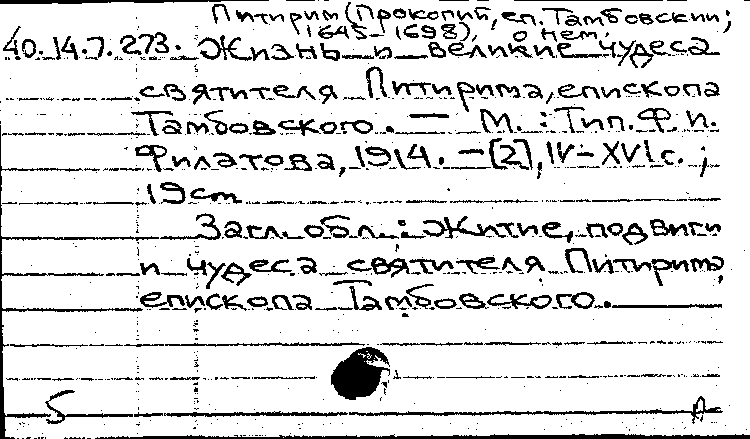 Питирим (Прокопий, еп. Тамбовский;
1645-1698), о нем.
40.14.7.273. Жизнь и великие чудеса
святителя Питирима, епископа
Тамбовского. — М. : Тип. Ф. И.
Филатова, 1914. — [2], IV-XVI с. ;
19 cm
Загл. обл. : Житие, подвиги
и чудеса святителя Питирима,
епископа Тамбовского.
5 А